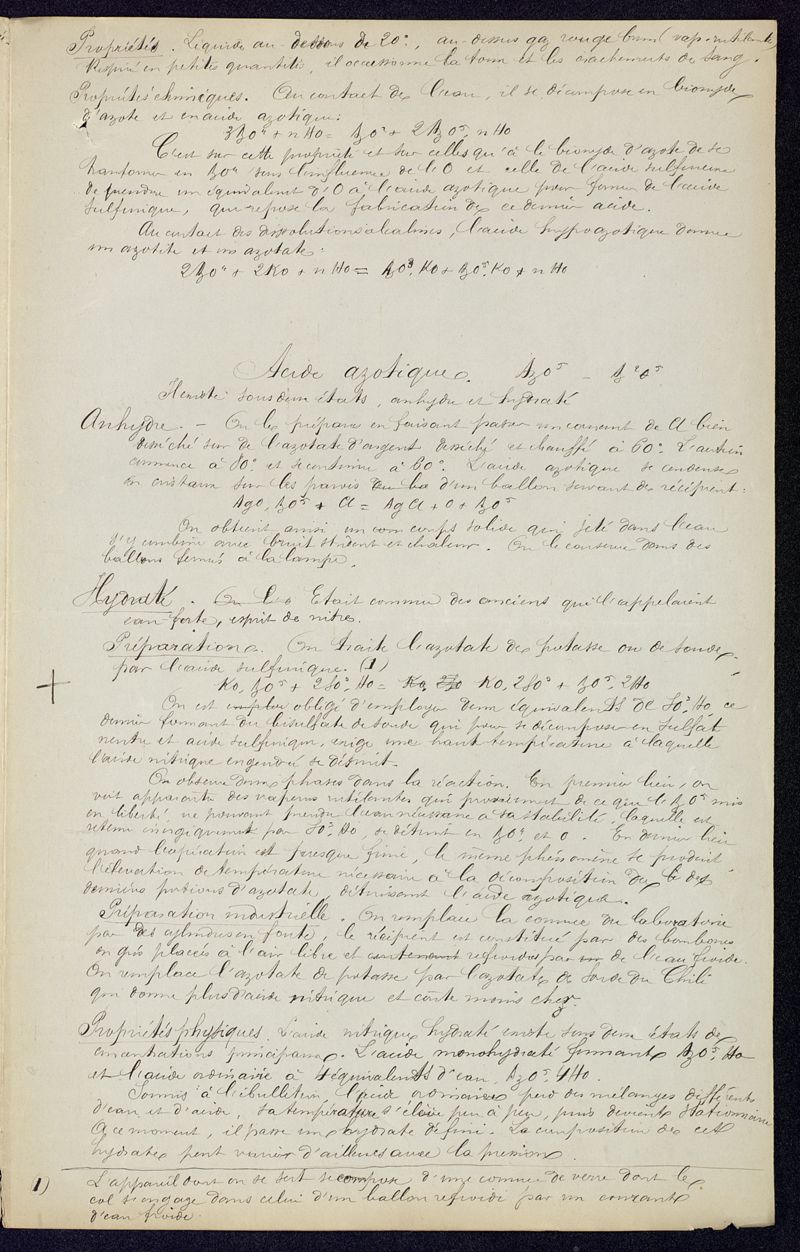 Propriétés. Liquide au-dessous de 20°, au-dessus gaz rouge brun (vap. rutilantes
Respiré en petites quantité, il occasionne la toux et les crachements de sang.
Propriétés chimiques. Au contact de l'eau, il se décompose en bioxyde
d'azote et en acide azotique:
3AzO⁴ + nHo = AzO² + 2AzO⁵, nHo
C'est sur cette propriété et sur celle qu'à le bioxyde d'azote de se
tranformer en AzO⁴ sous l'influence de l'O et celle de l'acide sulfureux
de prendre un équivalent d'O à l'acide azotique pour former de l'acide
sulfurique, que repose la fabrication de ce dernier acide.
Au contact des dissolutions alcalines, l'acide hypoazotique donne
un azotite et un azotate:
2AzO⁴ + 2Ko + nHo = AzO³, Ko + AzO⁵, Ko + nHo
Acide azotique. AzO⁵ - A²O⁵
Il existe sous deux états, anhydre et hydraté
Anhydre. - On le prépare en faisant passer un courant de Cl bien
desséché sur de l'azotate d'argent desséché et chauffé à 60°. L'action
commence à 80° et se continue à 60°. L'acide azotique se condense
en cristaux sur les parois du ba d'un ballon servant de récipient:
AgO, AzO⁵ + Cl = AgCl + O + AzO⁵
On obtient ainsi un con corps solide qui jeté dans l'eau
s'y combine avec bruit strident et chaleur. On le conserve dans des
ballons fermés à la lampe.
Hydraté. On l'o Etait connu des anciens qui l'appelaient
eau-forte, esprit de nitre.
Préparation. On traite l'azotate de potasse ou de soude
par l'acide sulfurique. (1)
Ko, AzO⁵ + 2So³, Ho = Ko, 2So Ko, 2So³ + AzO⁵, 2Ho
On est obligé d'employer deux équivalents de So³, Ho ce
dernier formant du bisulfate de soude qui pour se décomposer en sulfat
neutre et acide sulfurique, exige une haute température à laquelle
l'acide nitrique engendré se détruit.
On observe deux phases dans la réaction. En premier lieu, on
voit apparaître des vapeurs rutilantes qui proviennent de ce que le AzO⁵ mis
en liberté, ne pouvant prendre l'eau nécessaire à sa stabilité, laquelle est
retenue énergiquement par So³, Ho, se détruit en AzO⁴ et O. En dernier lieu
quand l'opération est presque finie, le même phénomène se produit
l'élévation de température nécessaire à la décomposition du le des
dernières portions d'azotate, détruisant l'acide azotique.
Préparation industrielle. On remplace la cornue du laboratoire
par des cylindres en fonte, le récipient est constitué par des bonbonnes
en grès placées à l'air libre et contenant refroidies par de l'eau froide.
On remplace l'azotate de potasse par l'azotate de soude du Chili
qui donne plus d'acide nitrique et coûte moins cher.
Propriétés physiques. L'acide nitrique hydraté existe sous deux états de
concentrations principaux. L'acide monohydraté fumant AzO⁵, Ho
et l'acide ordinaire à 4 équivalents d'eau, AzO⁵, 4Ho.
Soumis à l'ébullition l'acide ordinaire perd des mélanges différents
d'eau et d'acide, sa température s'élève peu à peu, puis devient stationnaire
A ce moment, il passe un hydrate défini. La composition de cet
hydrate peut varier d'ailleurs avec la pression.
1) L'appareil dont on se sert se compose d'une cornue de verre dont le
col s'engage dans celui d'un ballon refroidi par un courant
d'eau froide.